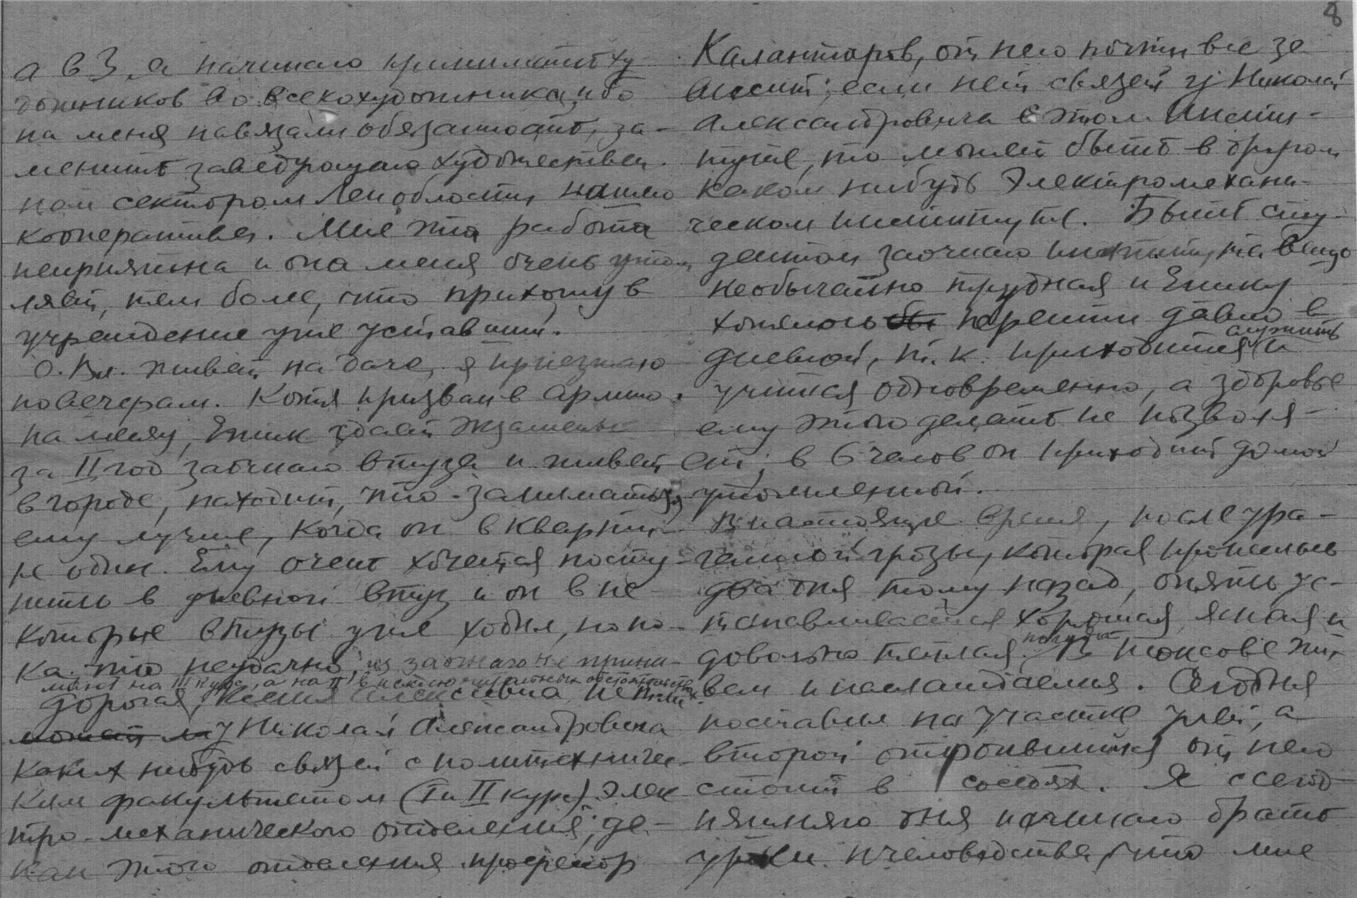 8
а в 3, я начинаю принимать ху-
дожников во всекохудожника, ибо
на меня навязали обязанность, за-
менить заведующаго художествен-
ном сектором Ленобласти нашего
кооператива. Мне эта работа
неприятна и она меня очень утом
ляет, тем более, что прихожу в
учреждение уже уставши.
О. Вл. живет на даче, я приезжаю
по вечерам. Котя призван в армию
на месяц, Еник сдает экзамены
за II год заочнаго втуза и живет
в городе, находит, что заниматься
ему лучше, когда он в кварти-
ре один. Ему очень хочется посту-
пить в дневной втуз и он в не-
которые втузы уже ходил, но по-
ка что неудачно, из заочнаго не прини-
мают на III курс, а на II в исключительных обстоятельствах.
Дорогая Ксения Алексеевна нет ли
может ли у Николая Александровича
каких нибудь связей с политехничес-
ким факультетом (I и II курс) элек
тро-механического отделения; де-
кан этого отделения профессор
Калантаров, от него почти все за
висит; если нет связей у Николая
Александровича в этом Инсти-
туте, то может быть в другом
каком нибудь Электромехани-
ческом институте. Быть сту-
дентом заочнаго института вещь
необычайно трудная и Енику
хотелось бы перейти давно в
дневной, т. к. приходится служить и
учиться одновременно, а здоровье
ему этого делать не позволя-
ет; в 6 часов он приходит домой
утомленный.
В настоящее время, после ура-
ганной грозы, которая пронеслась
два дня тому назад, опять ус-
танавливается хорошая, ясная и
довольно теплая погода. В Токсове жи-
вем и наслаждаемся. Сегодня
поставил на участке улей, а
второй отроившийся от него
стоит в соседях. Я с сегод
няшняго дня начинаю брать
уроки пчеловодства, что мне